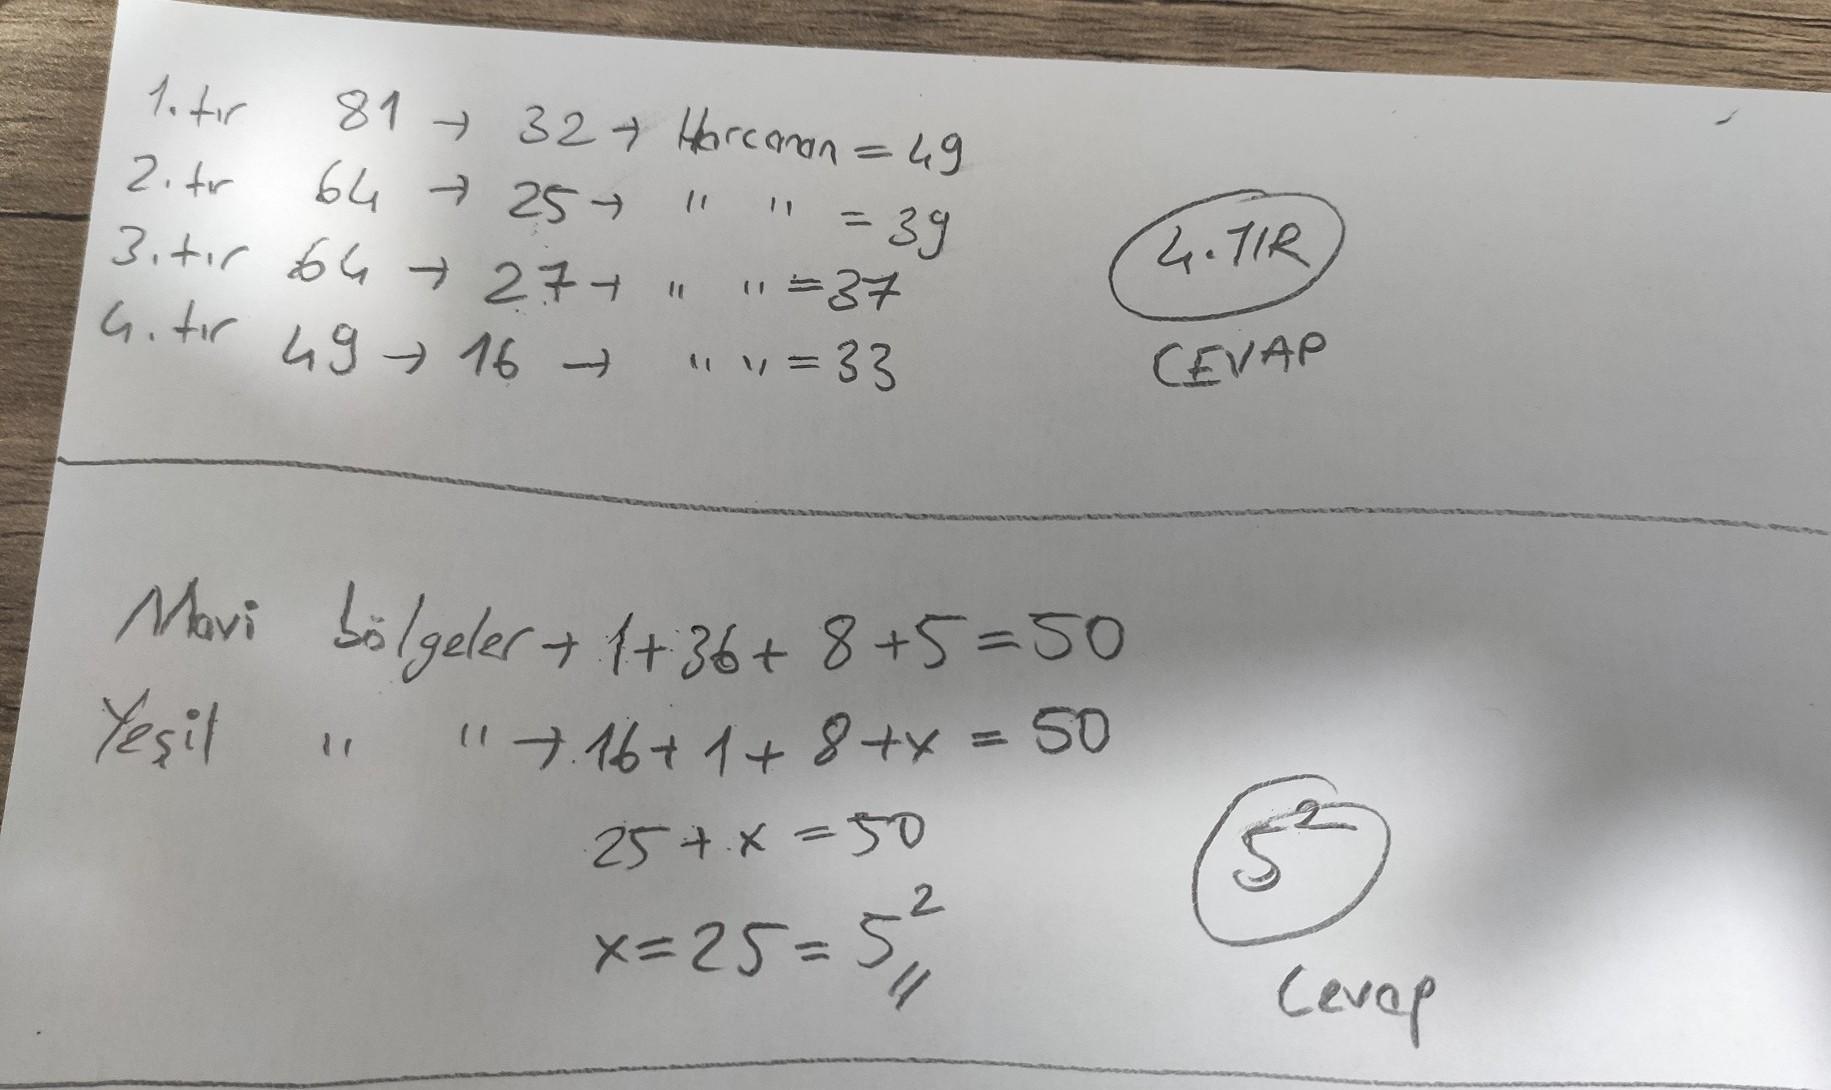 1. tır 81 → 32 → Harcanan = 49
2. tır 64 → 25 → " " = 39
3. tır 64 → 27 → " " = 37
4. tır 49 → 16 → " " = 33
4. TIR
CEVAP
Mavi bölgeler → 1 + 36 + 8 + 5 = 50
Yeşil " " → 16 + 1 + 8 + x = 50
25 + x = 50
x = 25 = 5²//
5²
Cevap